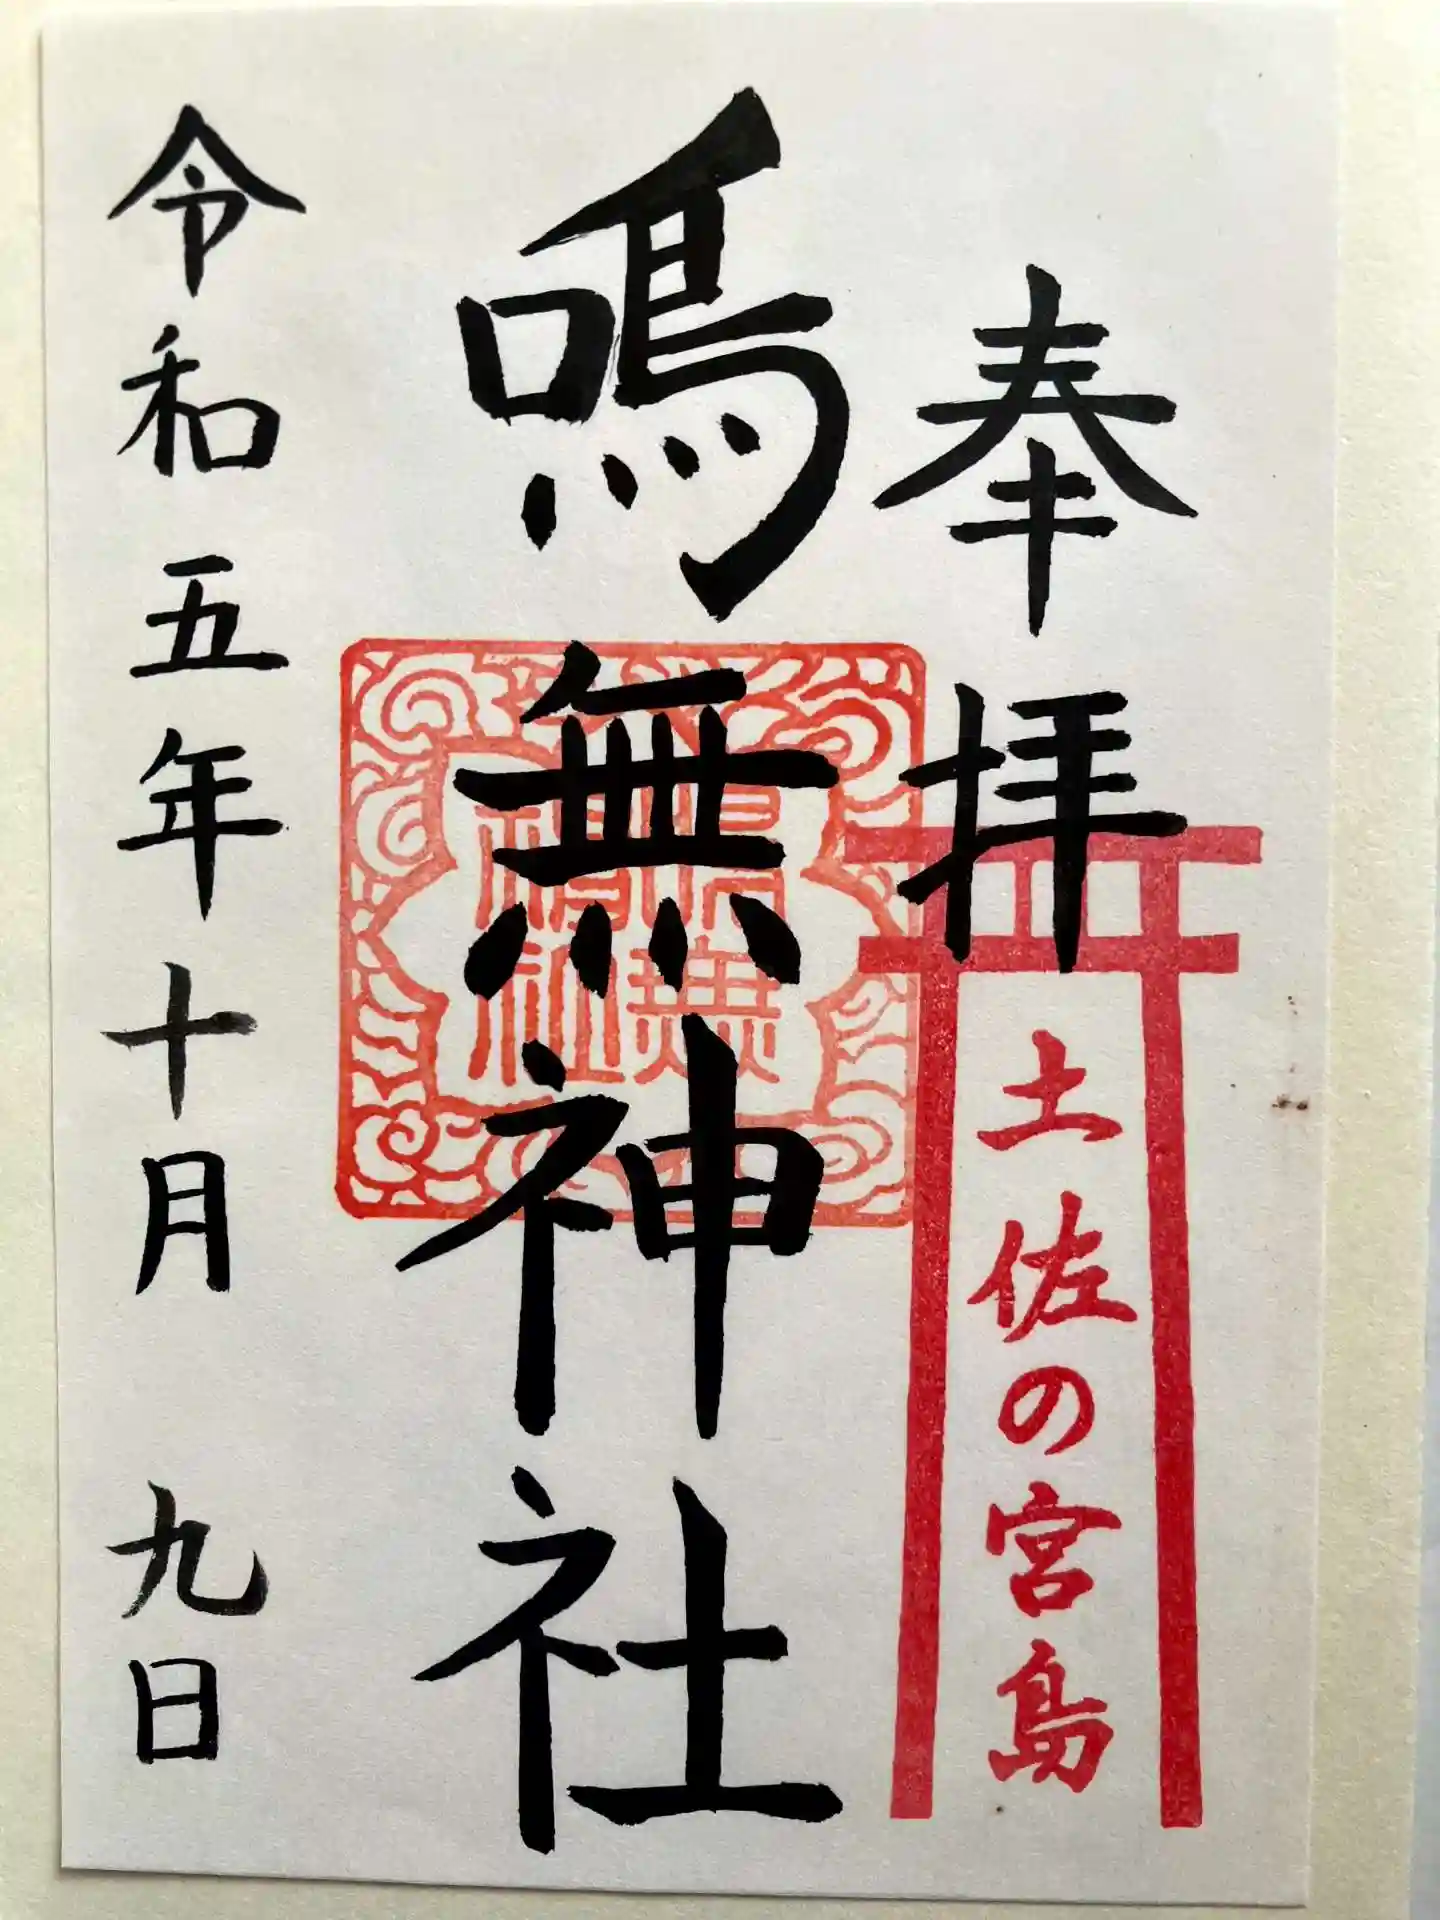 奉拝
土佐の宮島
鳴無神社
鳴無神社
令和五年十月九日